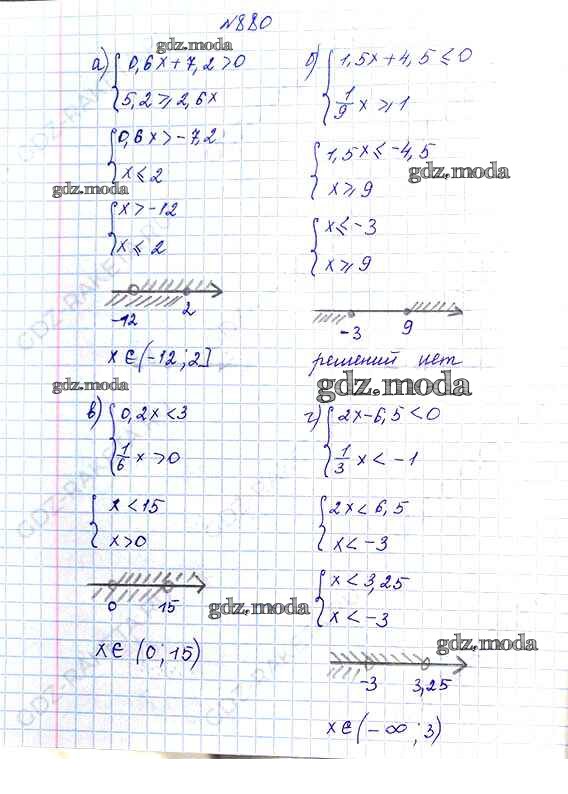 №880
gdz.moda
а) { 0,6x + 7,2 > 0
5,2 ⩾ 2,6x
{ 0,6x > -7,2
x ⩽ 2
gdz.moda
{ x > -12
x ⩽ 2
-12 2
x ∈ (-12; 2]
gdz.moda
б) { 1,5x + 4,5 ⩽ 0
1/9 x ⩾ 1
{ 1,5x ⩽ -4,5
x ⩾ 9
gdz.moda
{ x ⩽ -3
x ⩾ 9
-3 9
решений нет
gdz.moda
в) { 0,2x < 3
1/6 x > 0
{ x < 15
x > 0
0 15
gdz.moda
x ∈ (0; 15)
г) { 2x - 6,5 < 0
1/3 x < -1
{ 2x < 6,5
x < -3
{ x < 3,25
x < -3
gdz.moda
-3 3,25
x ∈ (-∞; 3)